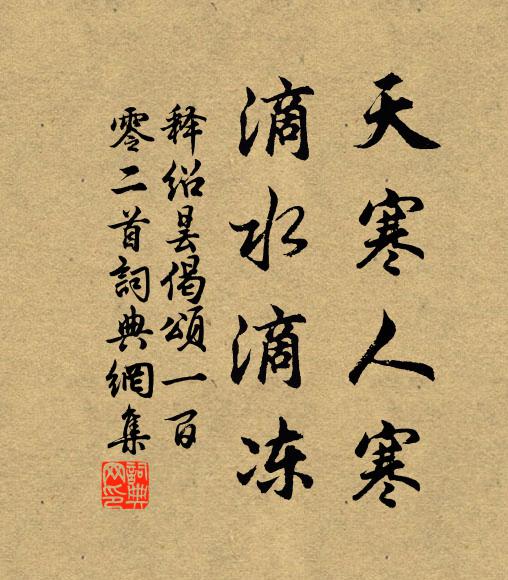 天寒人寒
滴水滴冻
释绍昙偈頌一百
零二首詞典網集
詞典
网印